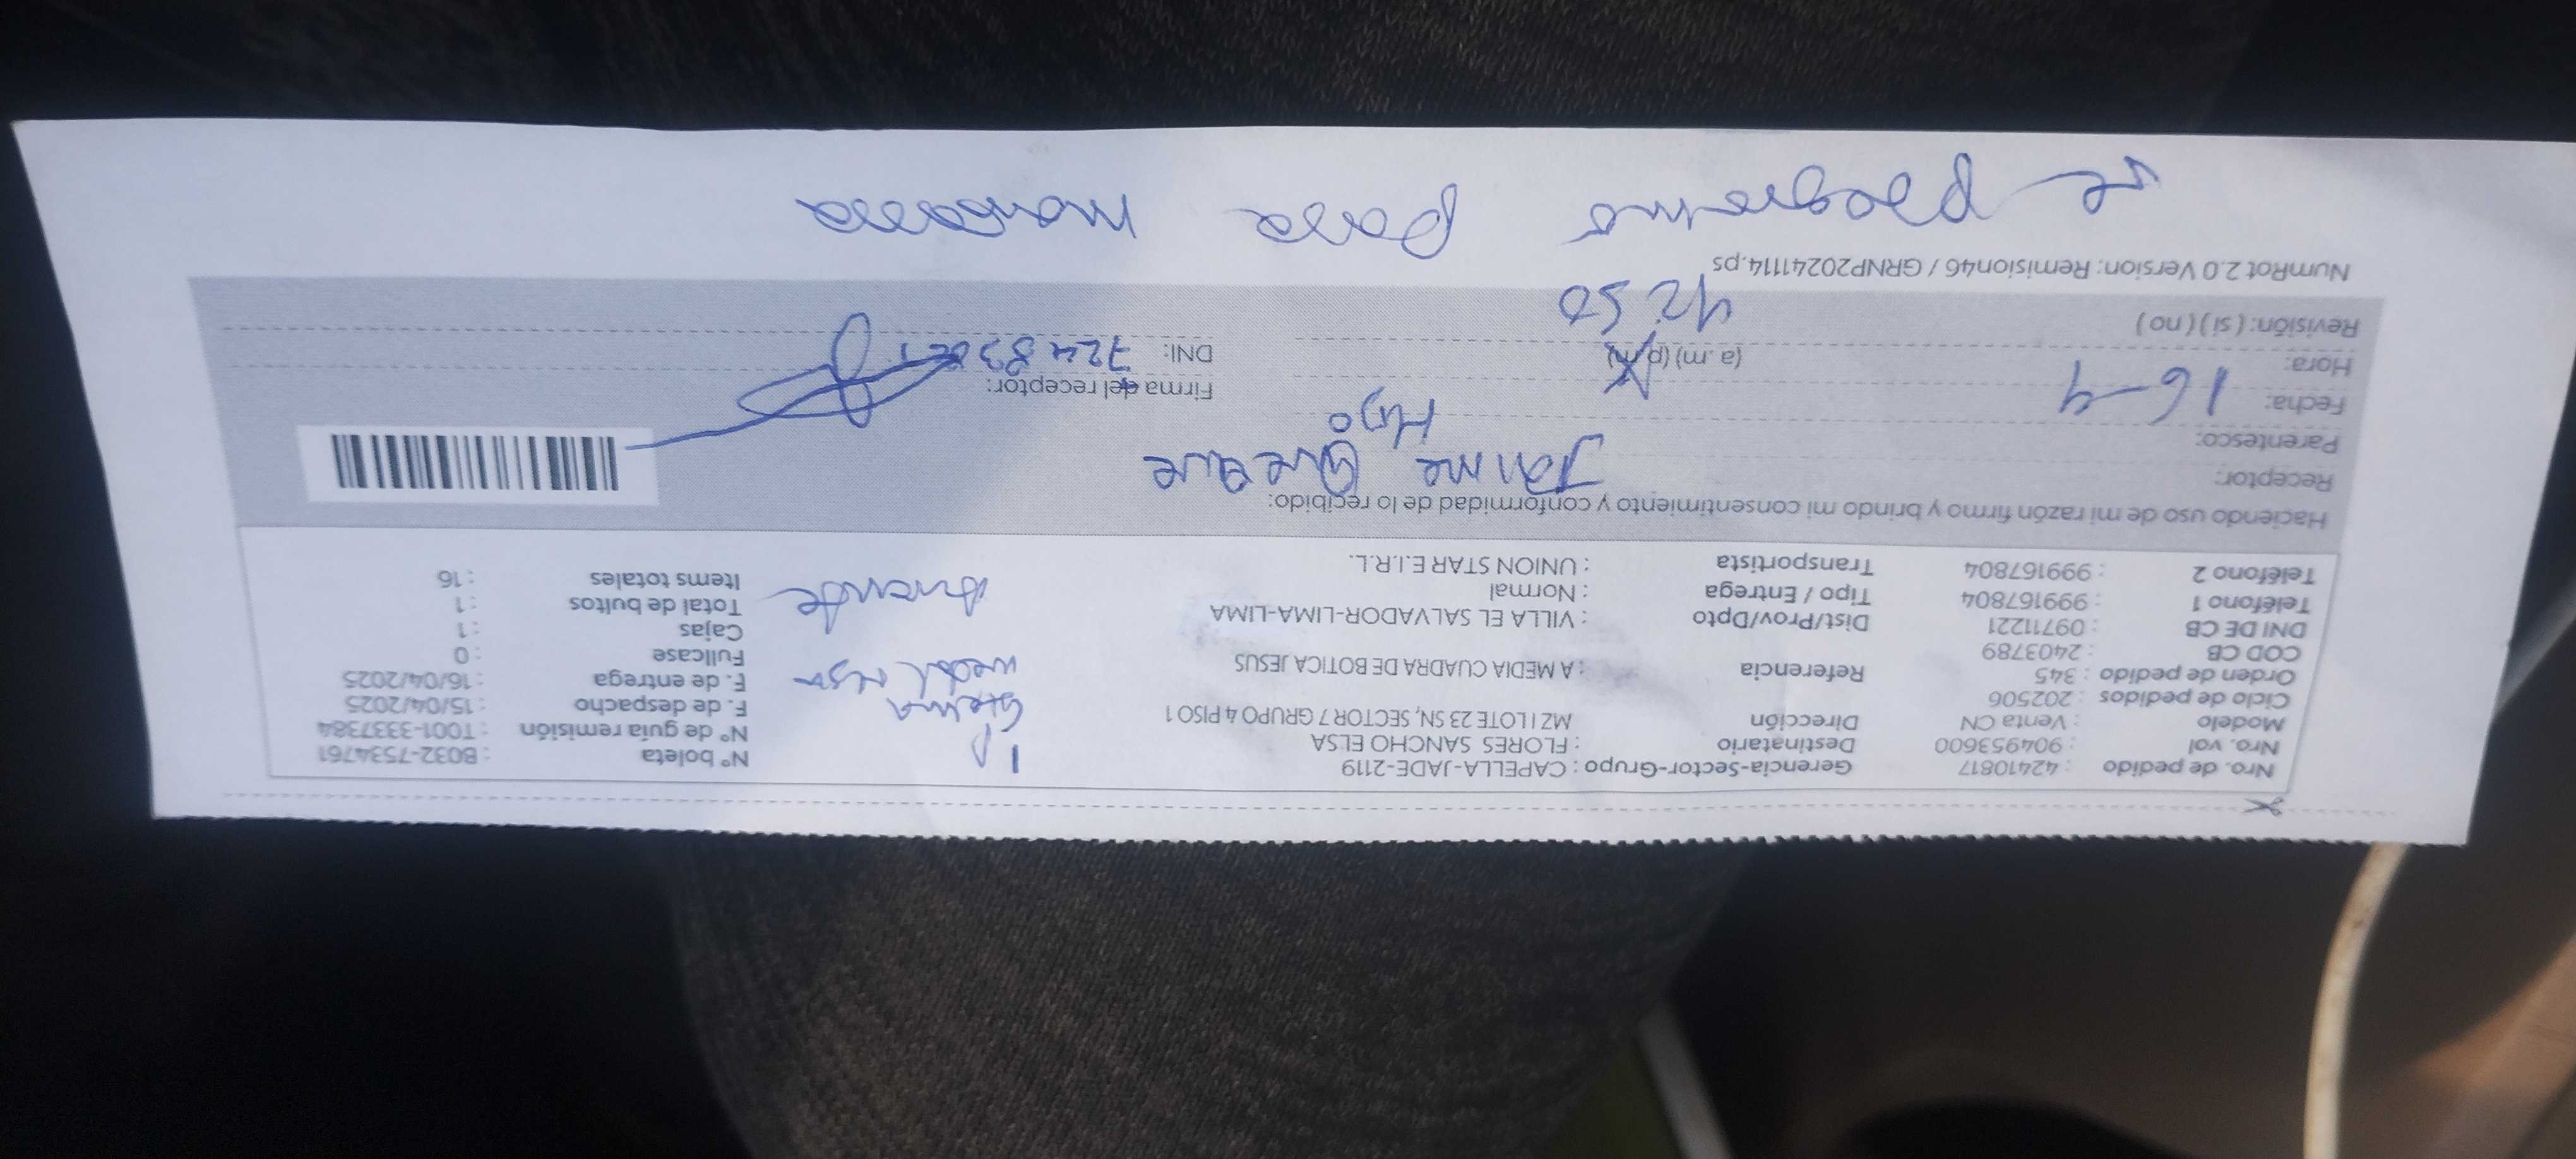 Nro. de pedido : 42410817 Gerencia-Sector-Grupo : CAPELLA-JADE-2119 N° boleta : B032-7534761
Nro. vol : 904953600 Destinatario : FLORES SANCHO ELSA N° de guía remisión : T001-3337384
Modelo : Venta CN Dirección MZ I LOTE 23 SN, SECTOR 7 GRUPO 4 PISO 1 F. de despacho : 15/04/2025
Ciclo de pedidos : 202506 F. de entrega : 16/04/2025
Orden de pedido : 345 Referencia : A MEDIA CUADRA DE BOTICA JESUS Fullcase : 0
COD CB : 2403789 Cajas : 1
DNI DE CB : 09711221 Dist/Prov/Dpto : VILLA EL SALVADOR-LIMA-LIMA Total de bultos : 1
Teléfono 1 : 999167804 Tipo / Entrega : Normal Items totales : 16
Teléfono 2 : 999167804 Transportista : UNION STAR E.I.R.L.
1P
Haciendo uso de mi razón firmo y brindo mi consentimiento y conformidad de lo recibido:
Receptor:
Parentesco: Hijo
Fecha: 16-4 Firma del receptor:
Hora: (a. m) (p. m) DNI:
Revisión: ( si ) ( no )
NumRot 2.0 Version: Remision46 / GRNP20241114.ps
se para